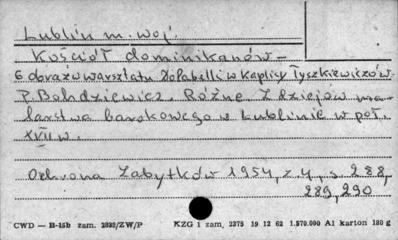 Lublin m. woj.
Kościół dominikanów –
6 obrazów warsztatu Dolabelli w Kaplicy Tyszkiewiczów.
P. Bohdziewicz. Różne. Z dziejów ma-
larstwa barokowego w Lublinie w poł.
XVII w.
Ochrona Zabytków 1954, z. 4, s. 288,
289, 290
CWD — B-15b zam. 2832/ZW/P KZG 1 zam, 2375 19 12 62 1.570.000 A1 karton 180 g